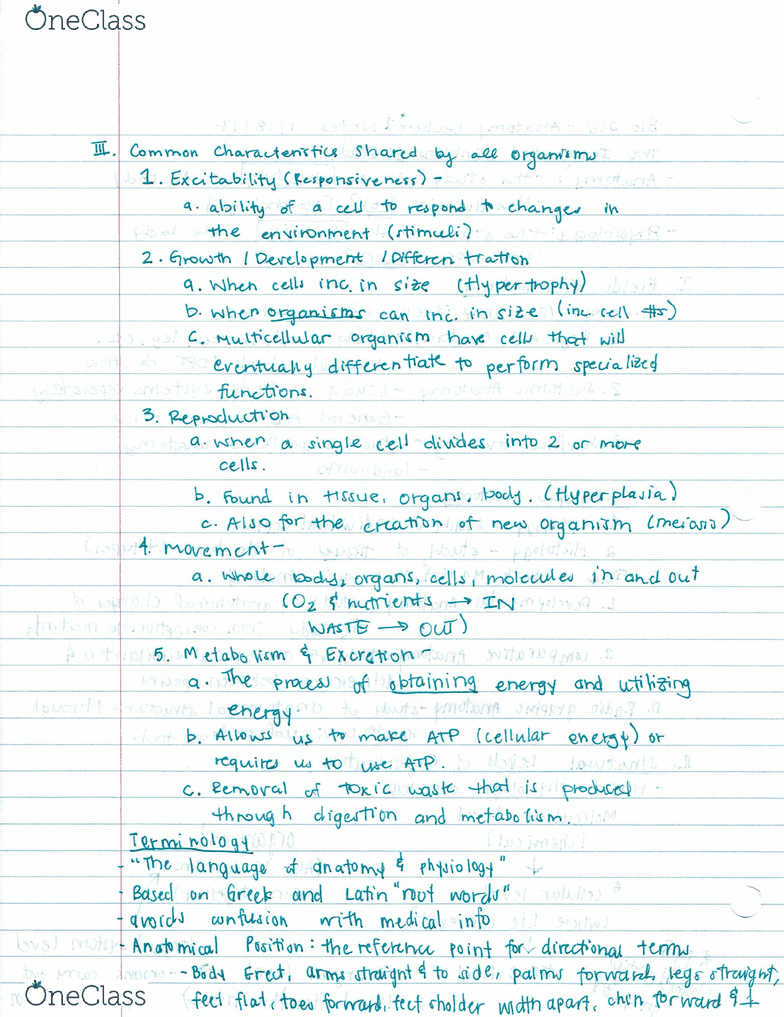 OneClass
III. Common Characteristics Shared by all organisms
1. Excitability (Responsiveness) -
a. ability of a cell to respond to changes in
the environment (stimuli)
2. Growth / Development / Differentration
a. When cells inc. in size (Hypertrophy)
b. when organisms can inc. in size (inc. cell #s)
C. Multicellular organism have cells that will
eventually differentiate to perform specialized
functions.
3. Reproduction
a. when a single cell divides into 2 or more
cells.
b. Found in tissue, organs, body. (Hyperplasia)
c. Also for the creation of new organism (meiosis)
4. Movement -
a. Whole body, organs, cells, molecules in and out
(O2 & nutrients → IN
WASTE → OUT)
5. Metabolism & Excretion -
a. The process of obtaining energy and utilizing
energy.
b. Allows us to make ATP (cellular energy) or
requires us to use ATP.
c. Removal of toxic waste that is produced
through digestion and metabolism.
Terminology
- "The language of anatomy & physiology"
- Based on Greek and Latin "root words"
- avoids confusion with medical info
- Anatomical Position: the reference point for directional terms
- Body Erect, arms straight & to side, palms forward, legs straight,
feet flat, toes forward, feet sholder width apart, chin forward &
OneClass